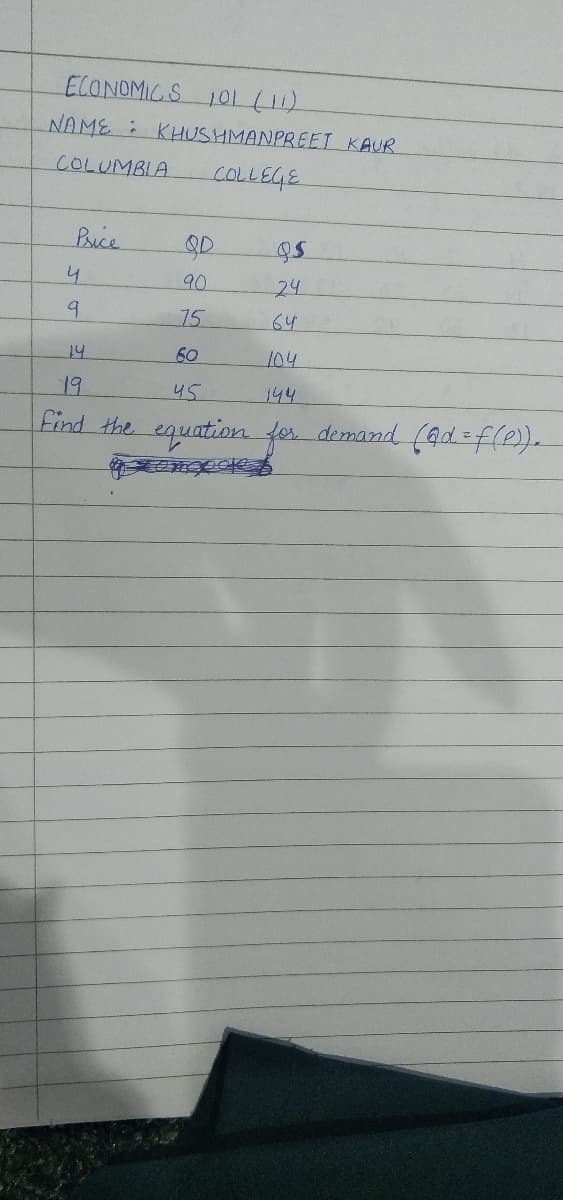 ECONOMICS 101 (11)
NAME : KHUSHMANPREET KAUR
COLUMBIA COLLEGE
Price QD QS
4 90 24
9 75 64
14 60 104
19 45 144
Find the equation for demand (Qd = f(P)).